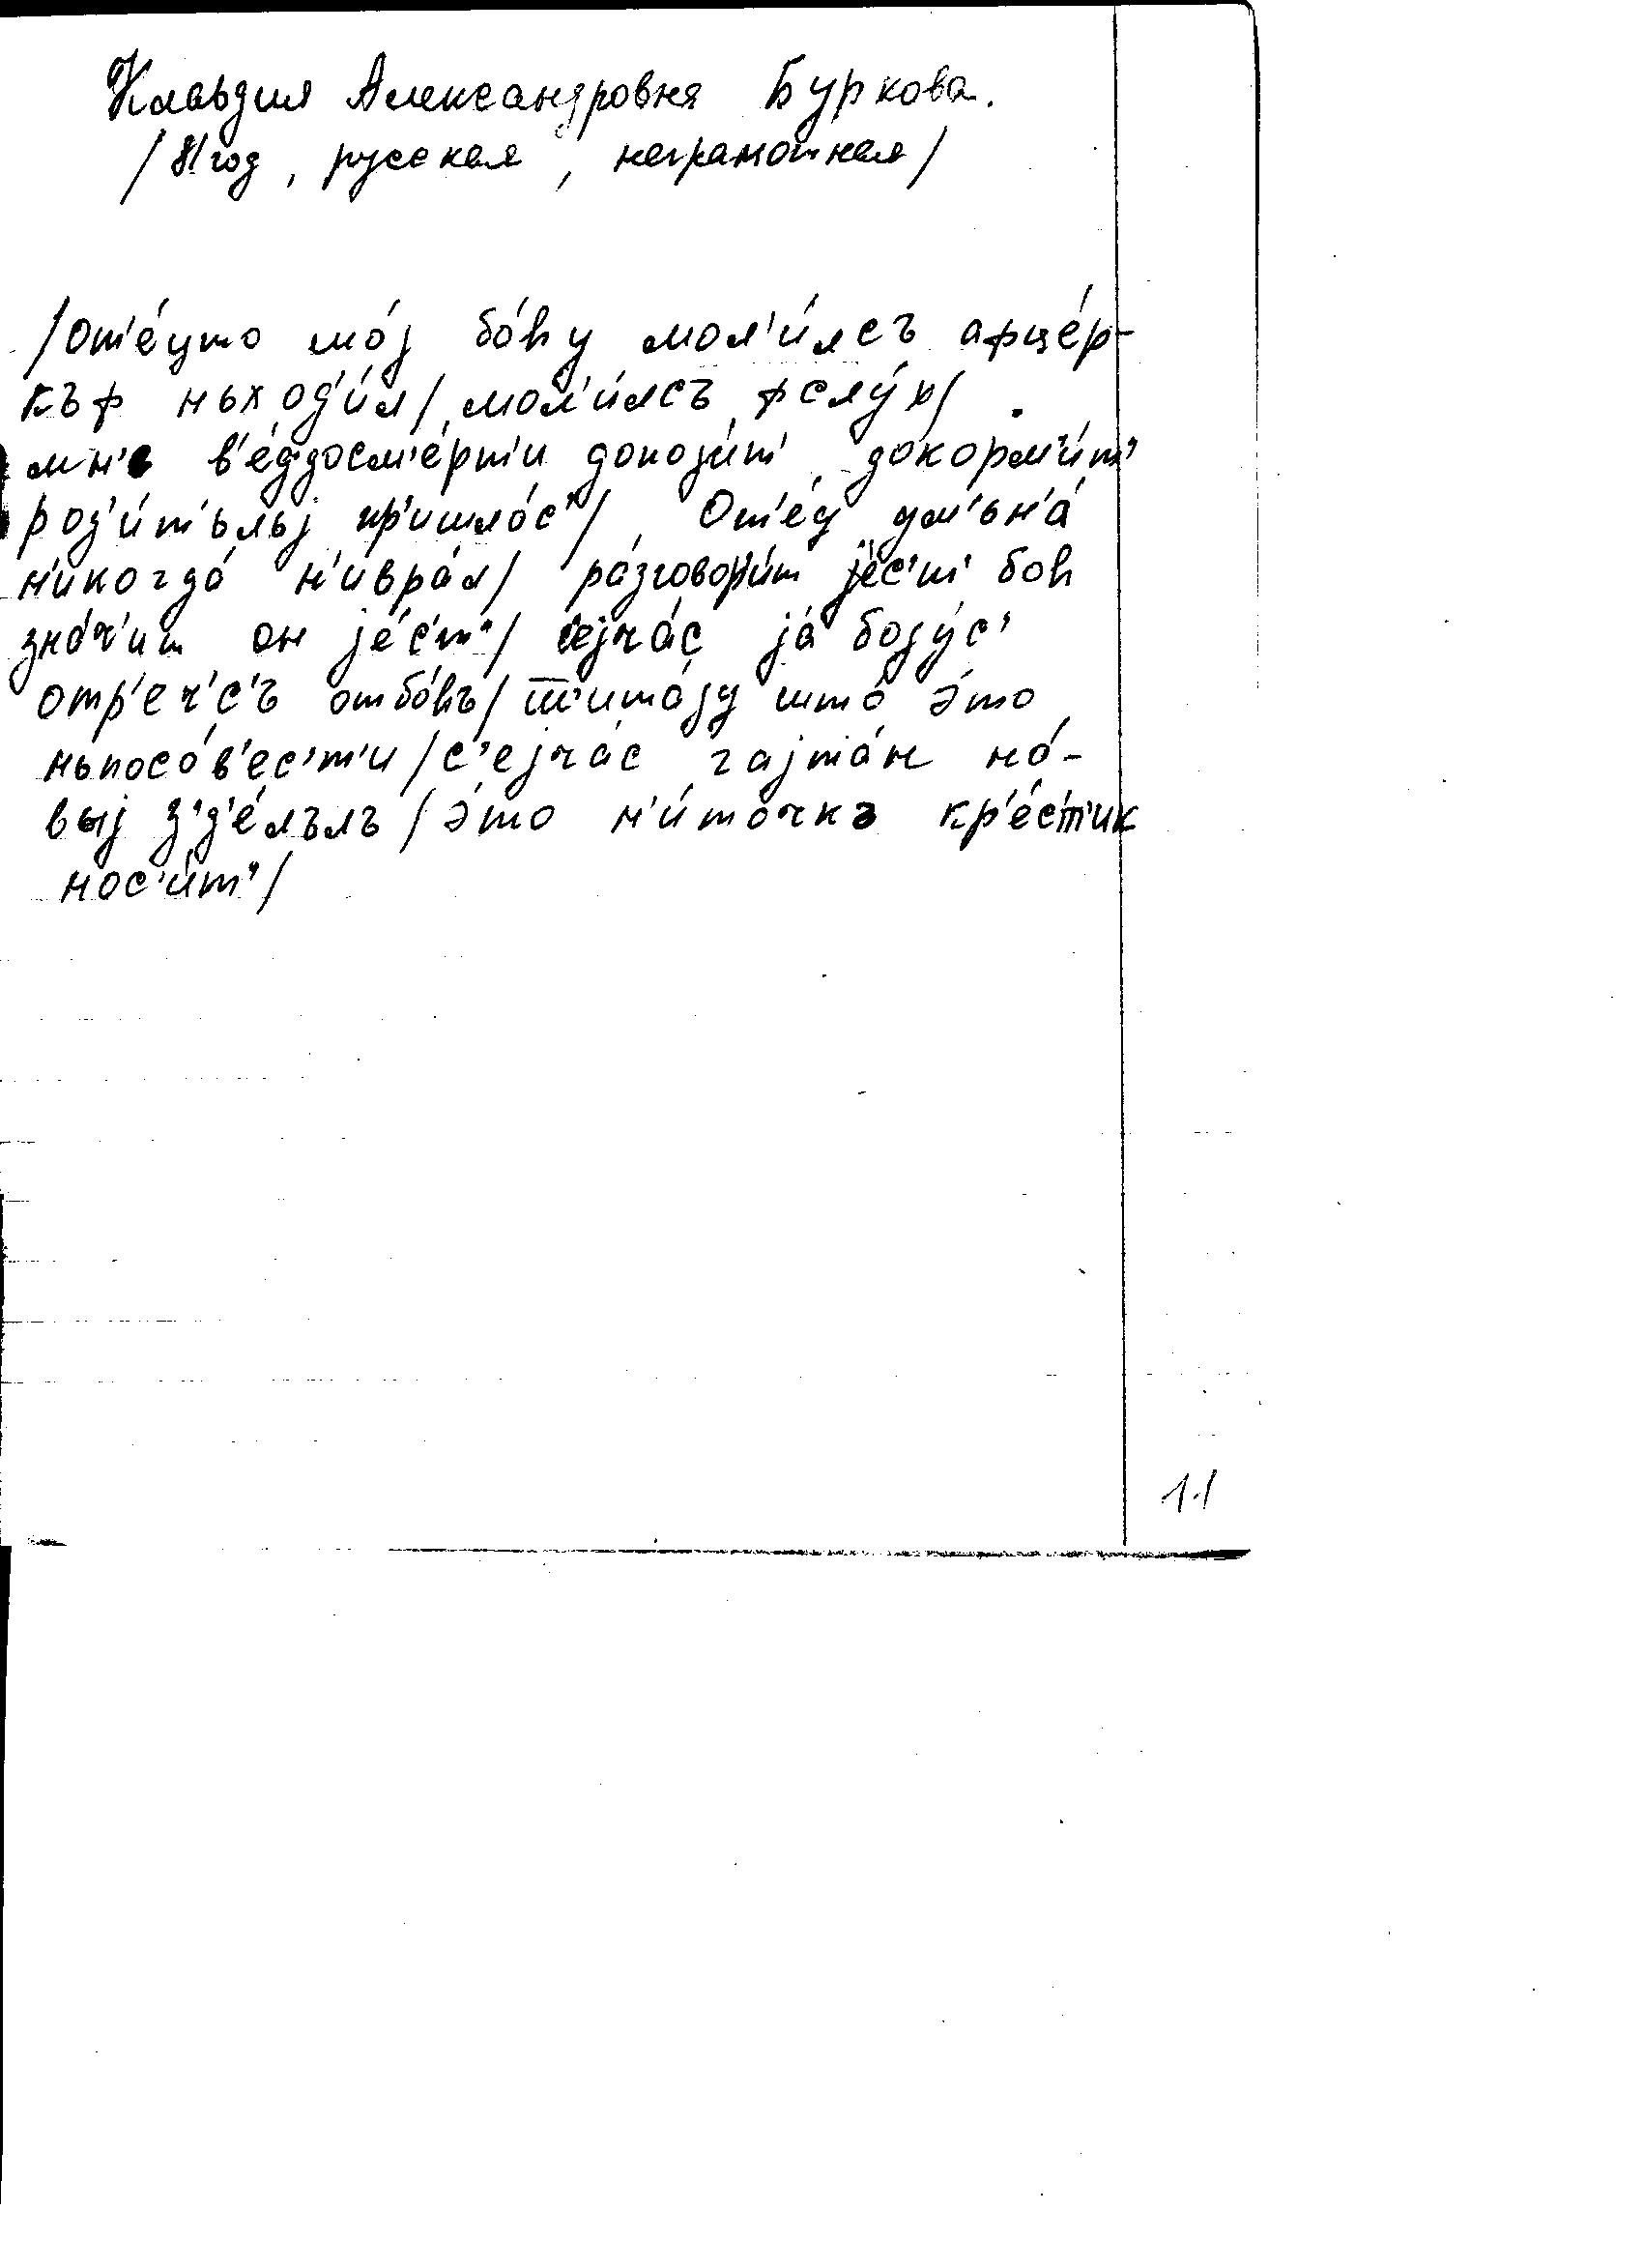 Клавдия Александровна Буркова.
/81 год, русская, неграмотная/
/от'е́цто мо́ј бо́hу мол'и́лсъ афце́р-
къф ньход'и́л/ мол'и́лсъ фслу́х/
мн'ь в'е́ддосм'е́рт'и допои́т' докорм'и́т'
род'и́т'ьльј пр'ишло́с'/ От'е́ц ум'ьн'а́
н'икогда́ н'ивра́л/ ра́зговори́т је́с'т' боh
зна́ч'ит он је́с'т'/ с'ејча́с ја́ боју́с'
отр'е́ч'с'ъ отбо́hъ/ ш'ита́ју што́ э́то
ньпосо́в'ес'т'и/с'ејча́с гајта́н но́-
выј з'д'е́лълъ/э́то н'и́точкъ кр'е́ст'ик
нос'и́т'/
11